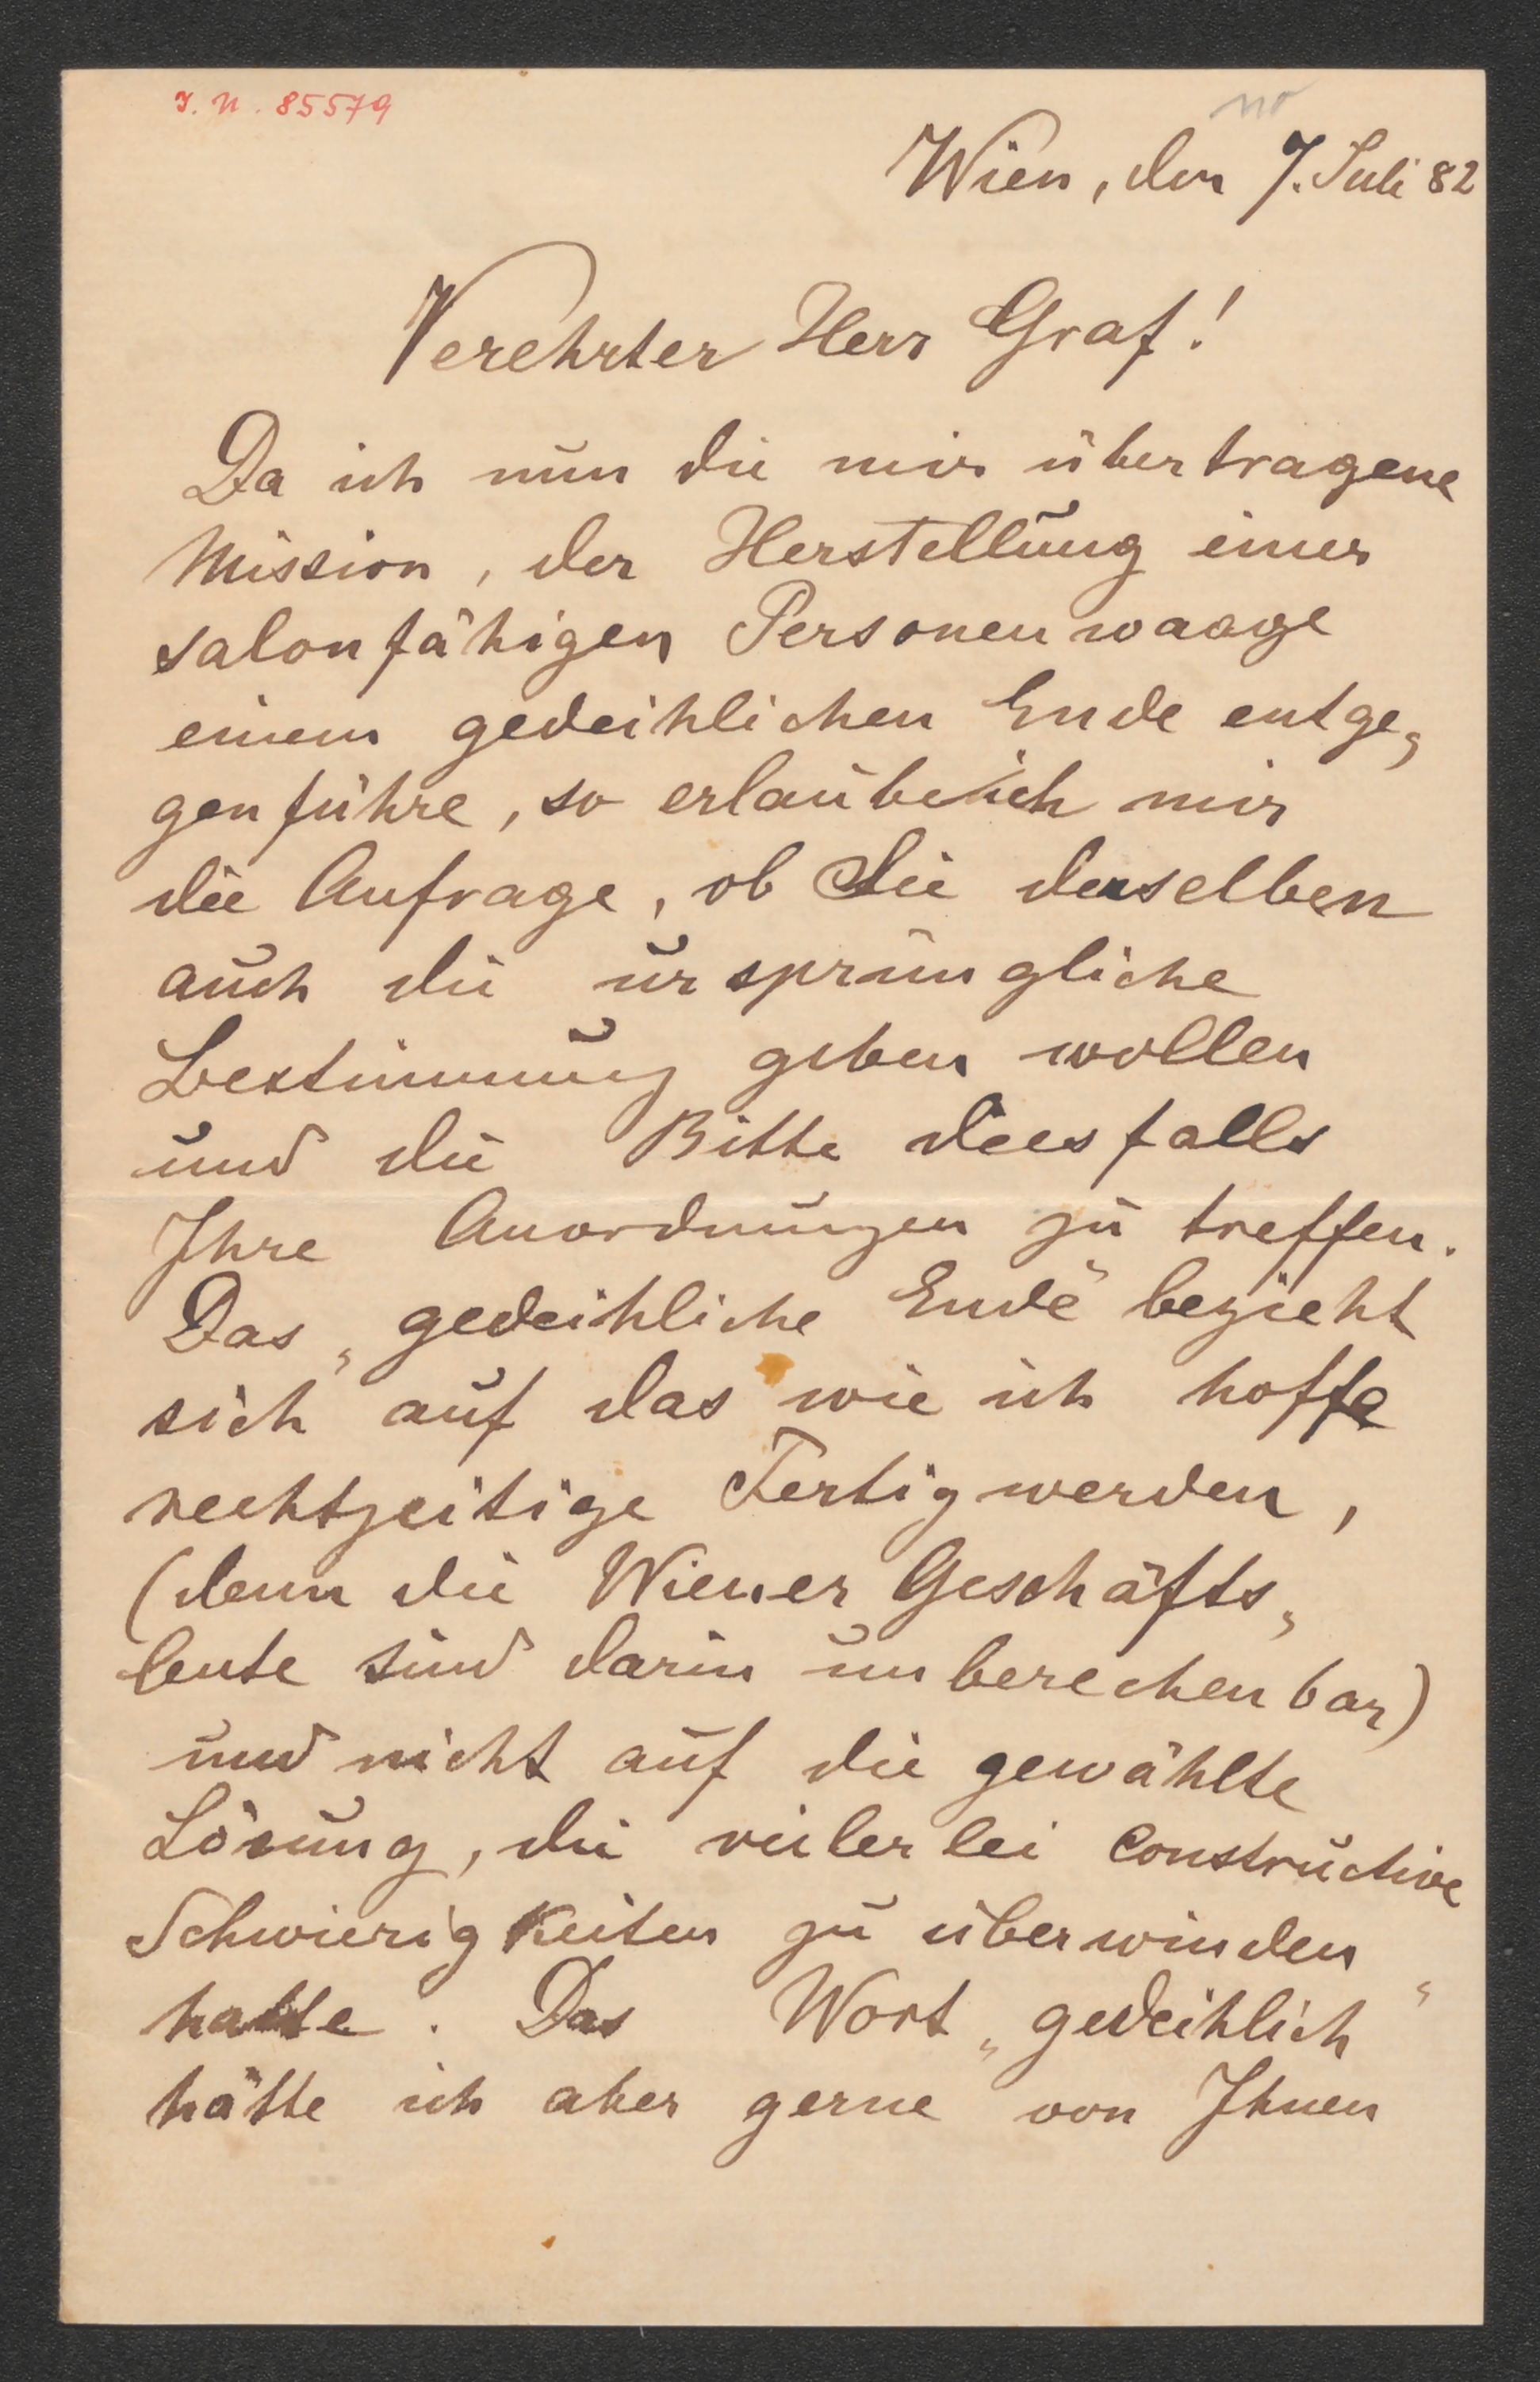 J. N. 85579
no
Wien, den 7. Juli 82
Verehrter Herr Graf!
Da ich nun die mir übertragene
Mission, der Herstellung einer
salonfähigen Personenwaage
einem gedeihlichen Ende entge-
genführe, so erlaube ich mir
die Anfrage, ob Sie derselben
auch die ursprüngliche
Bestimmung geben wollen
und die Bitte diesfalls
Ihre Anordnungen zu treffen.
Das „gedeihliche Ende“ bezieht
sich auf das wie ich hoffe
rechtzeitige Fertigwerden,
(denn die Wiener Geschäfts-
leute sind darin unberechenbar)
und nicht auf die gewählte
Lösung, die vielerlei constructive
Schwierigkeiten zu überwinden
hatte. Das Wort „gedeihlich“
hätte ich aber gerne von Ihnen